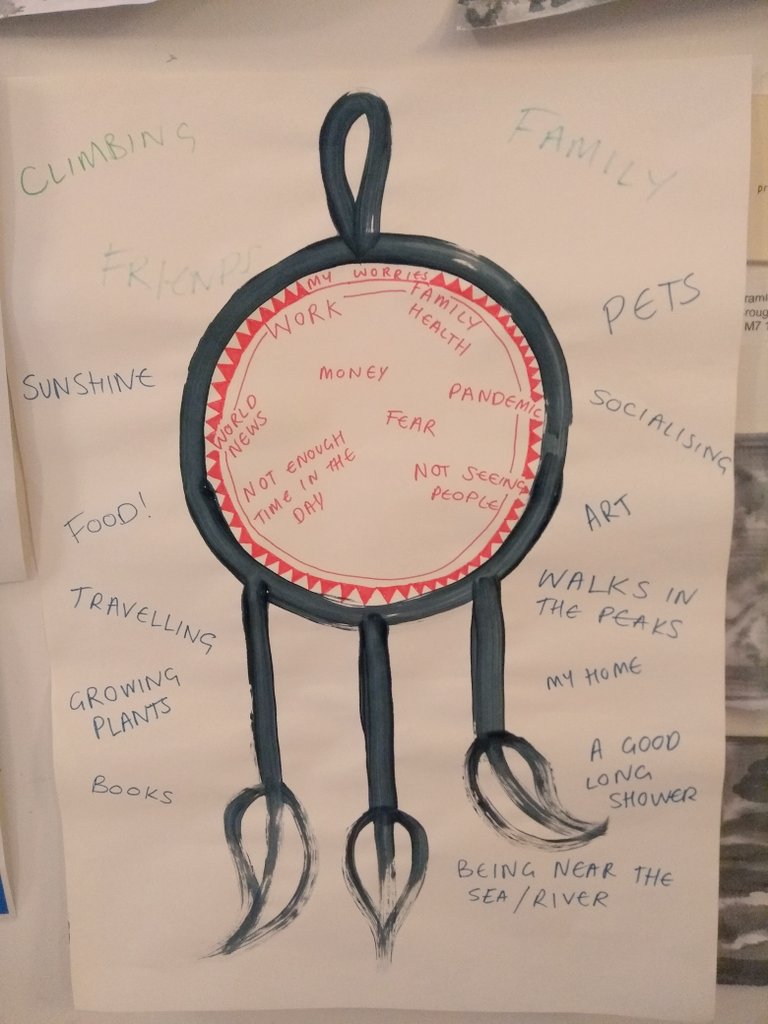 CLIMBING
FAMILY
FRIENDS
MY WORRIES
WORK
FAMILY
HEALTH
PETS
SUNSHINE
MONEY
PANDEMIC
SOCIALISING
WORLD
NEWS
FEAR
NOT ENOUGH
TIME IN THE
DAY
NOT SEEING
PEOPLE
FOOD!
ART
TRAVELLING
WALKS IN
THE PEAKS
GROWING
PLANTS
MY HOME
BOOKS
A GOOD
LONG
SHOWER
BEING NEAR THE
SEA/RIVER